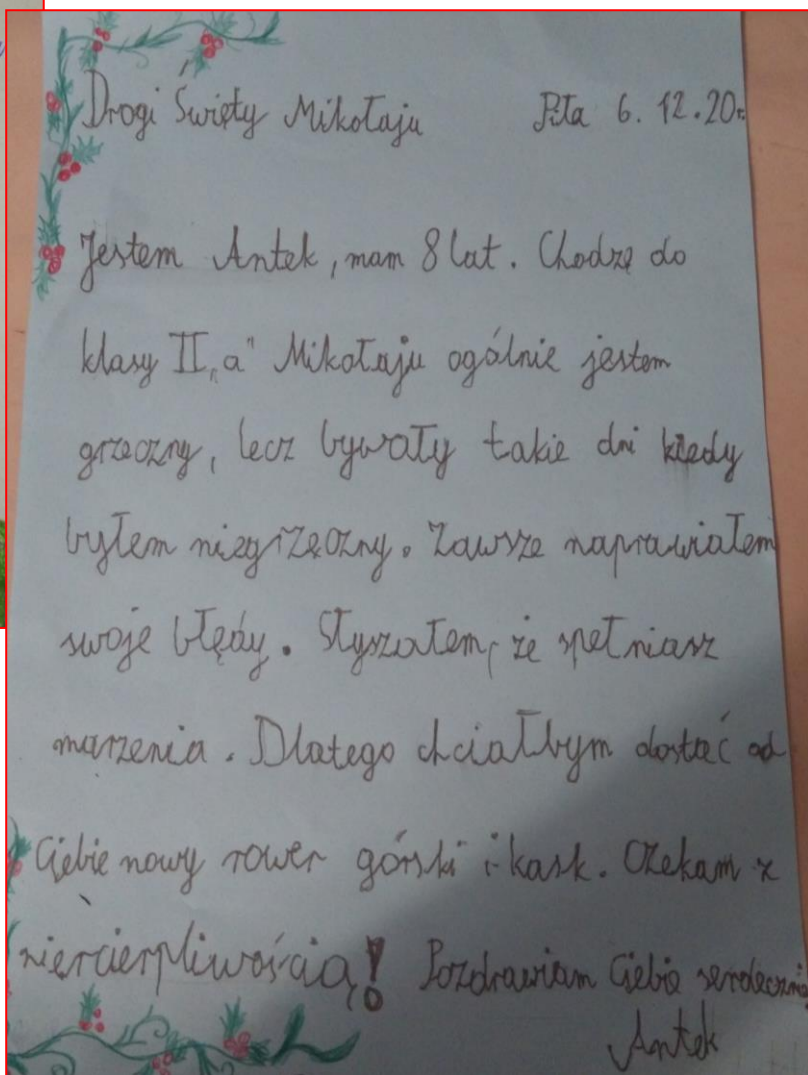 Drogi Święty Mikołaju Piła 6. 12. 20r.
Jestem Antek, mam 8 lat. Chodzę do
klasy II „a" Mikołaju ogólnie jestem
grzeczny, lecz bywały takie dni kiedy
byłem niegrzeczny. Zawsze naprawiałem
swoje błędy. Słyszałem, że spełniasz
marzenia. Dlatego chciałbym dostać od
Ciebie nowy rower górski i kask. Czekam z
niercierpliwością! Pozdrawiam Ciebie serdecznie
Antek